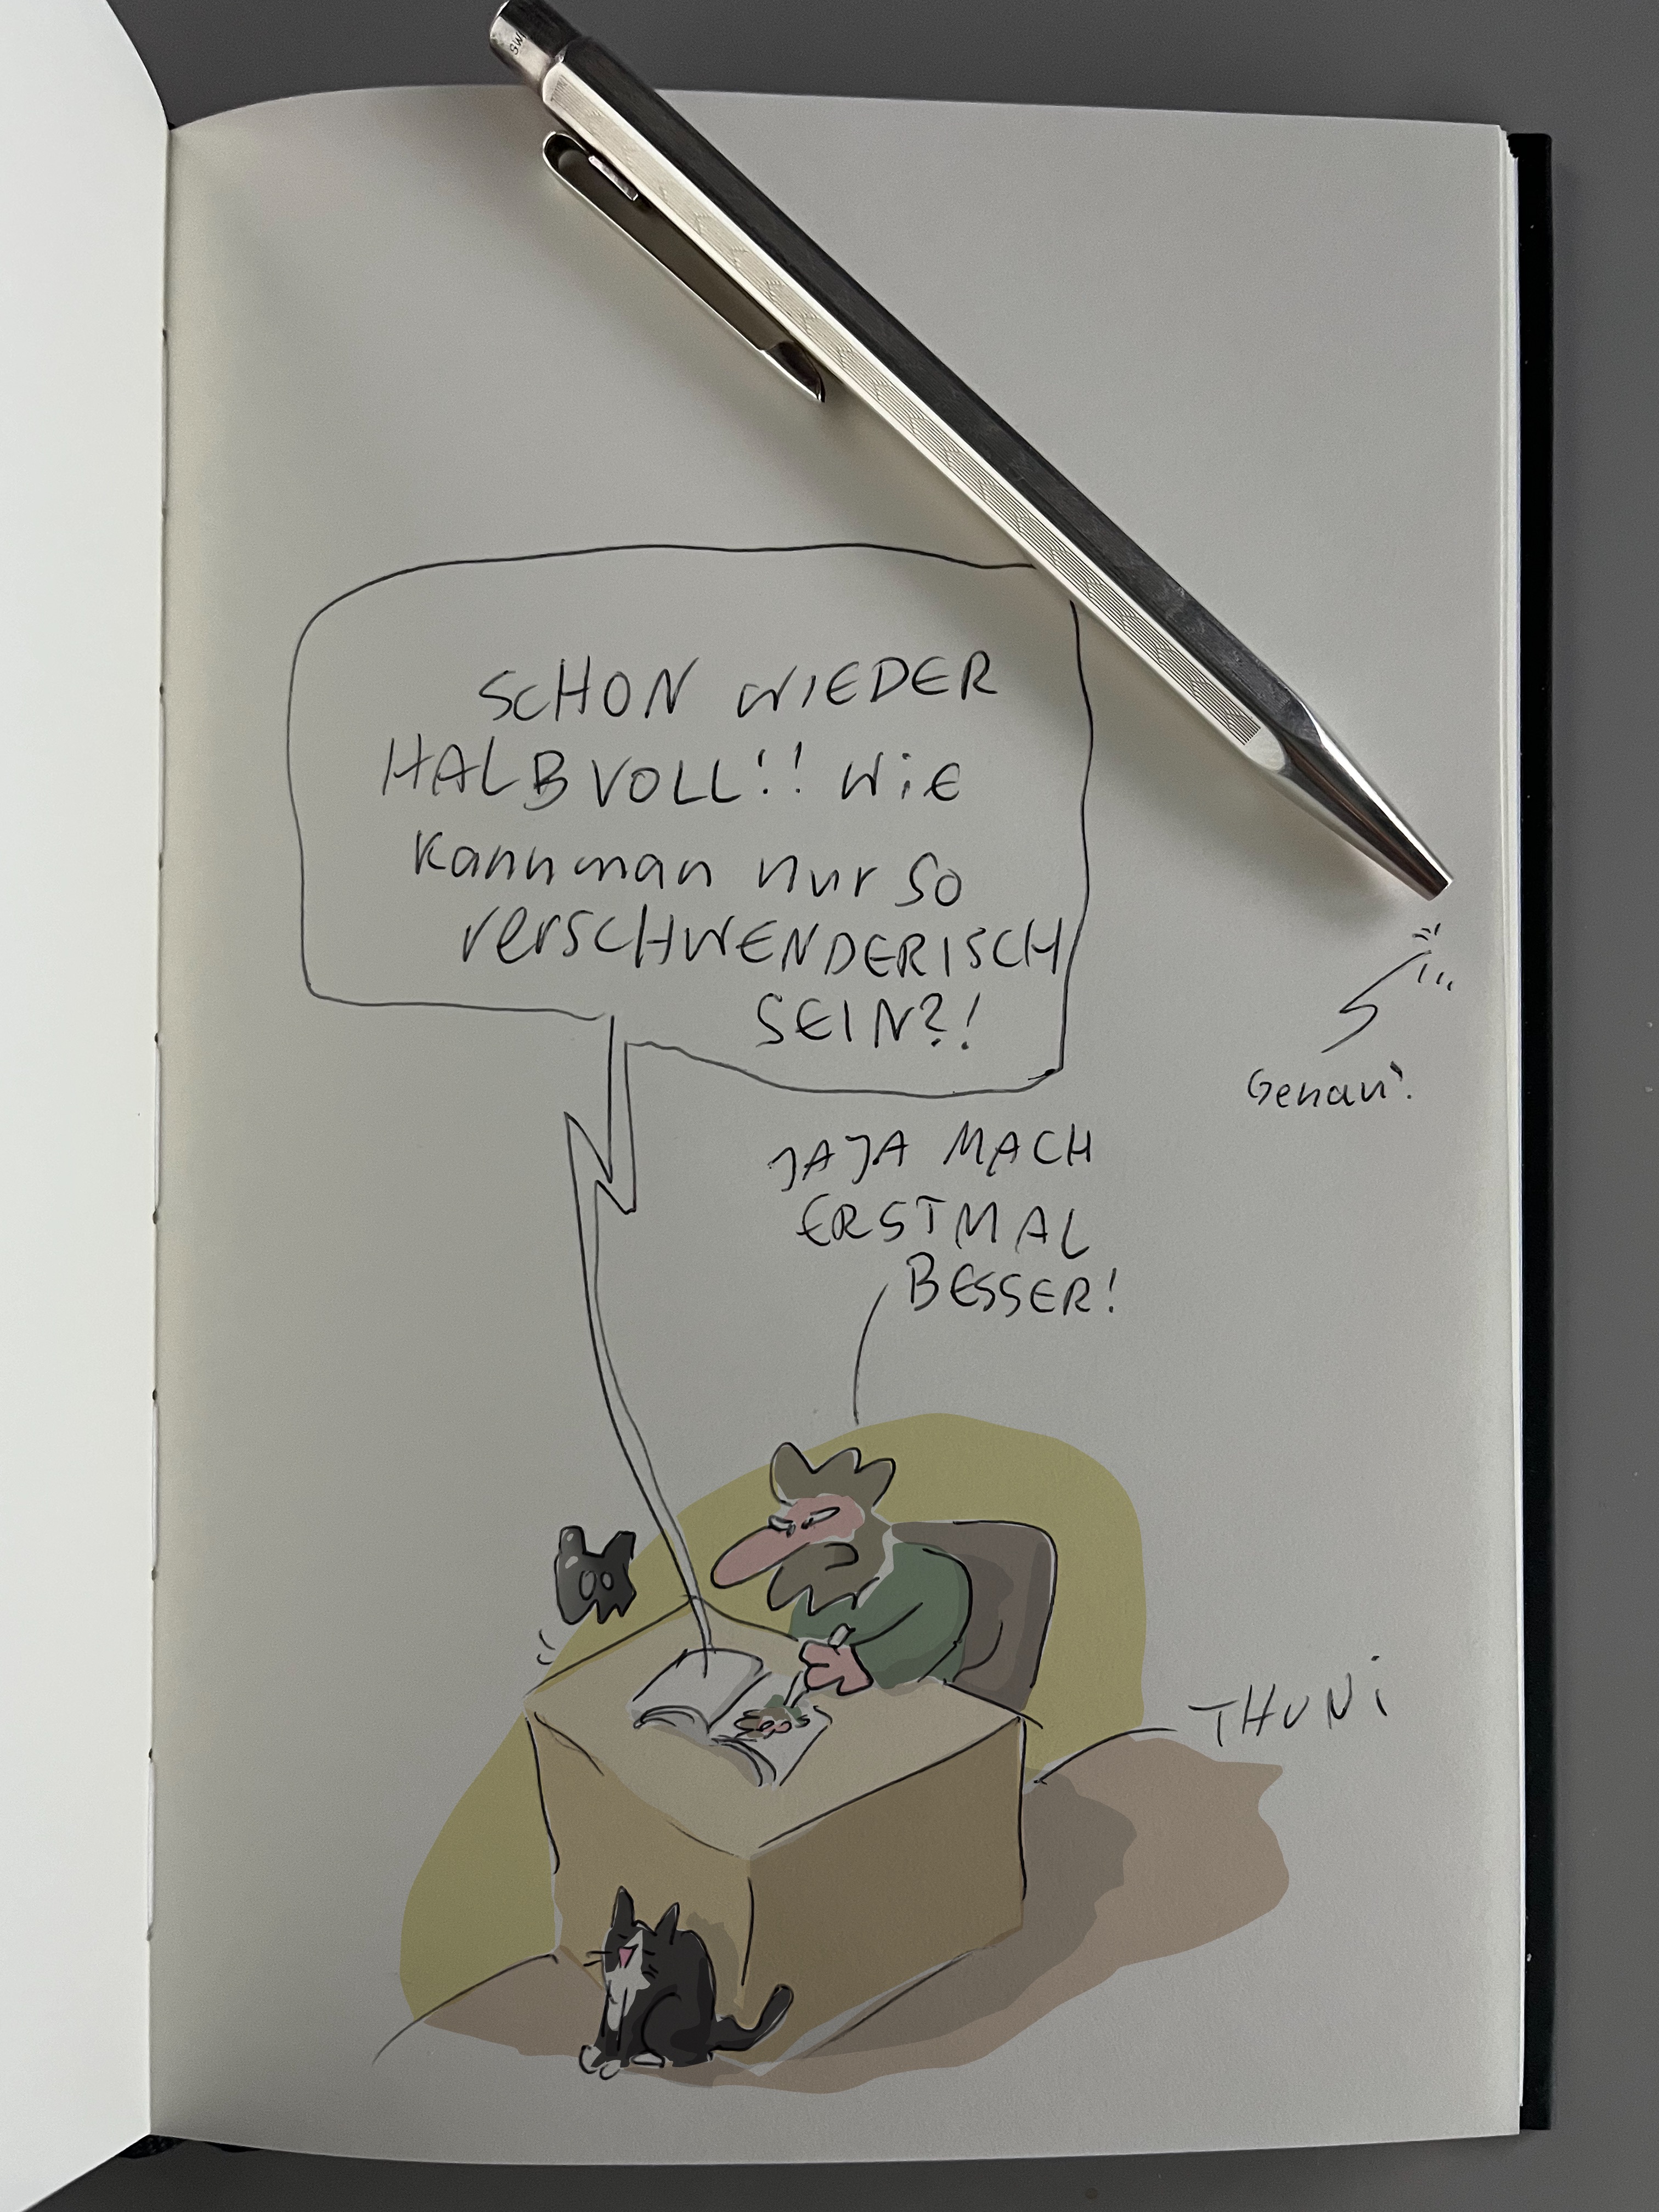 SWI
SCHON WIEDER
HALBVOLL!! WIE
kann man nur so
verSCHWENDERISCH
SEIN?!
Genau!
JAJA MACH
ERSTMAL
BESSER!
THUNi